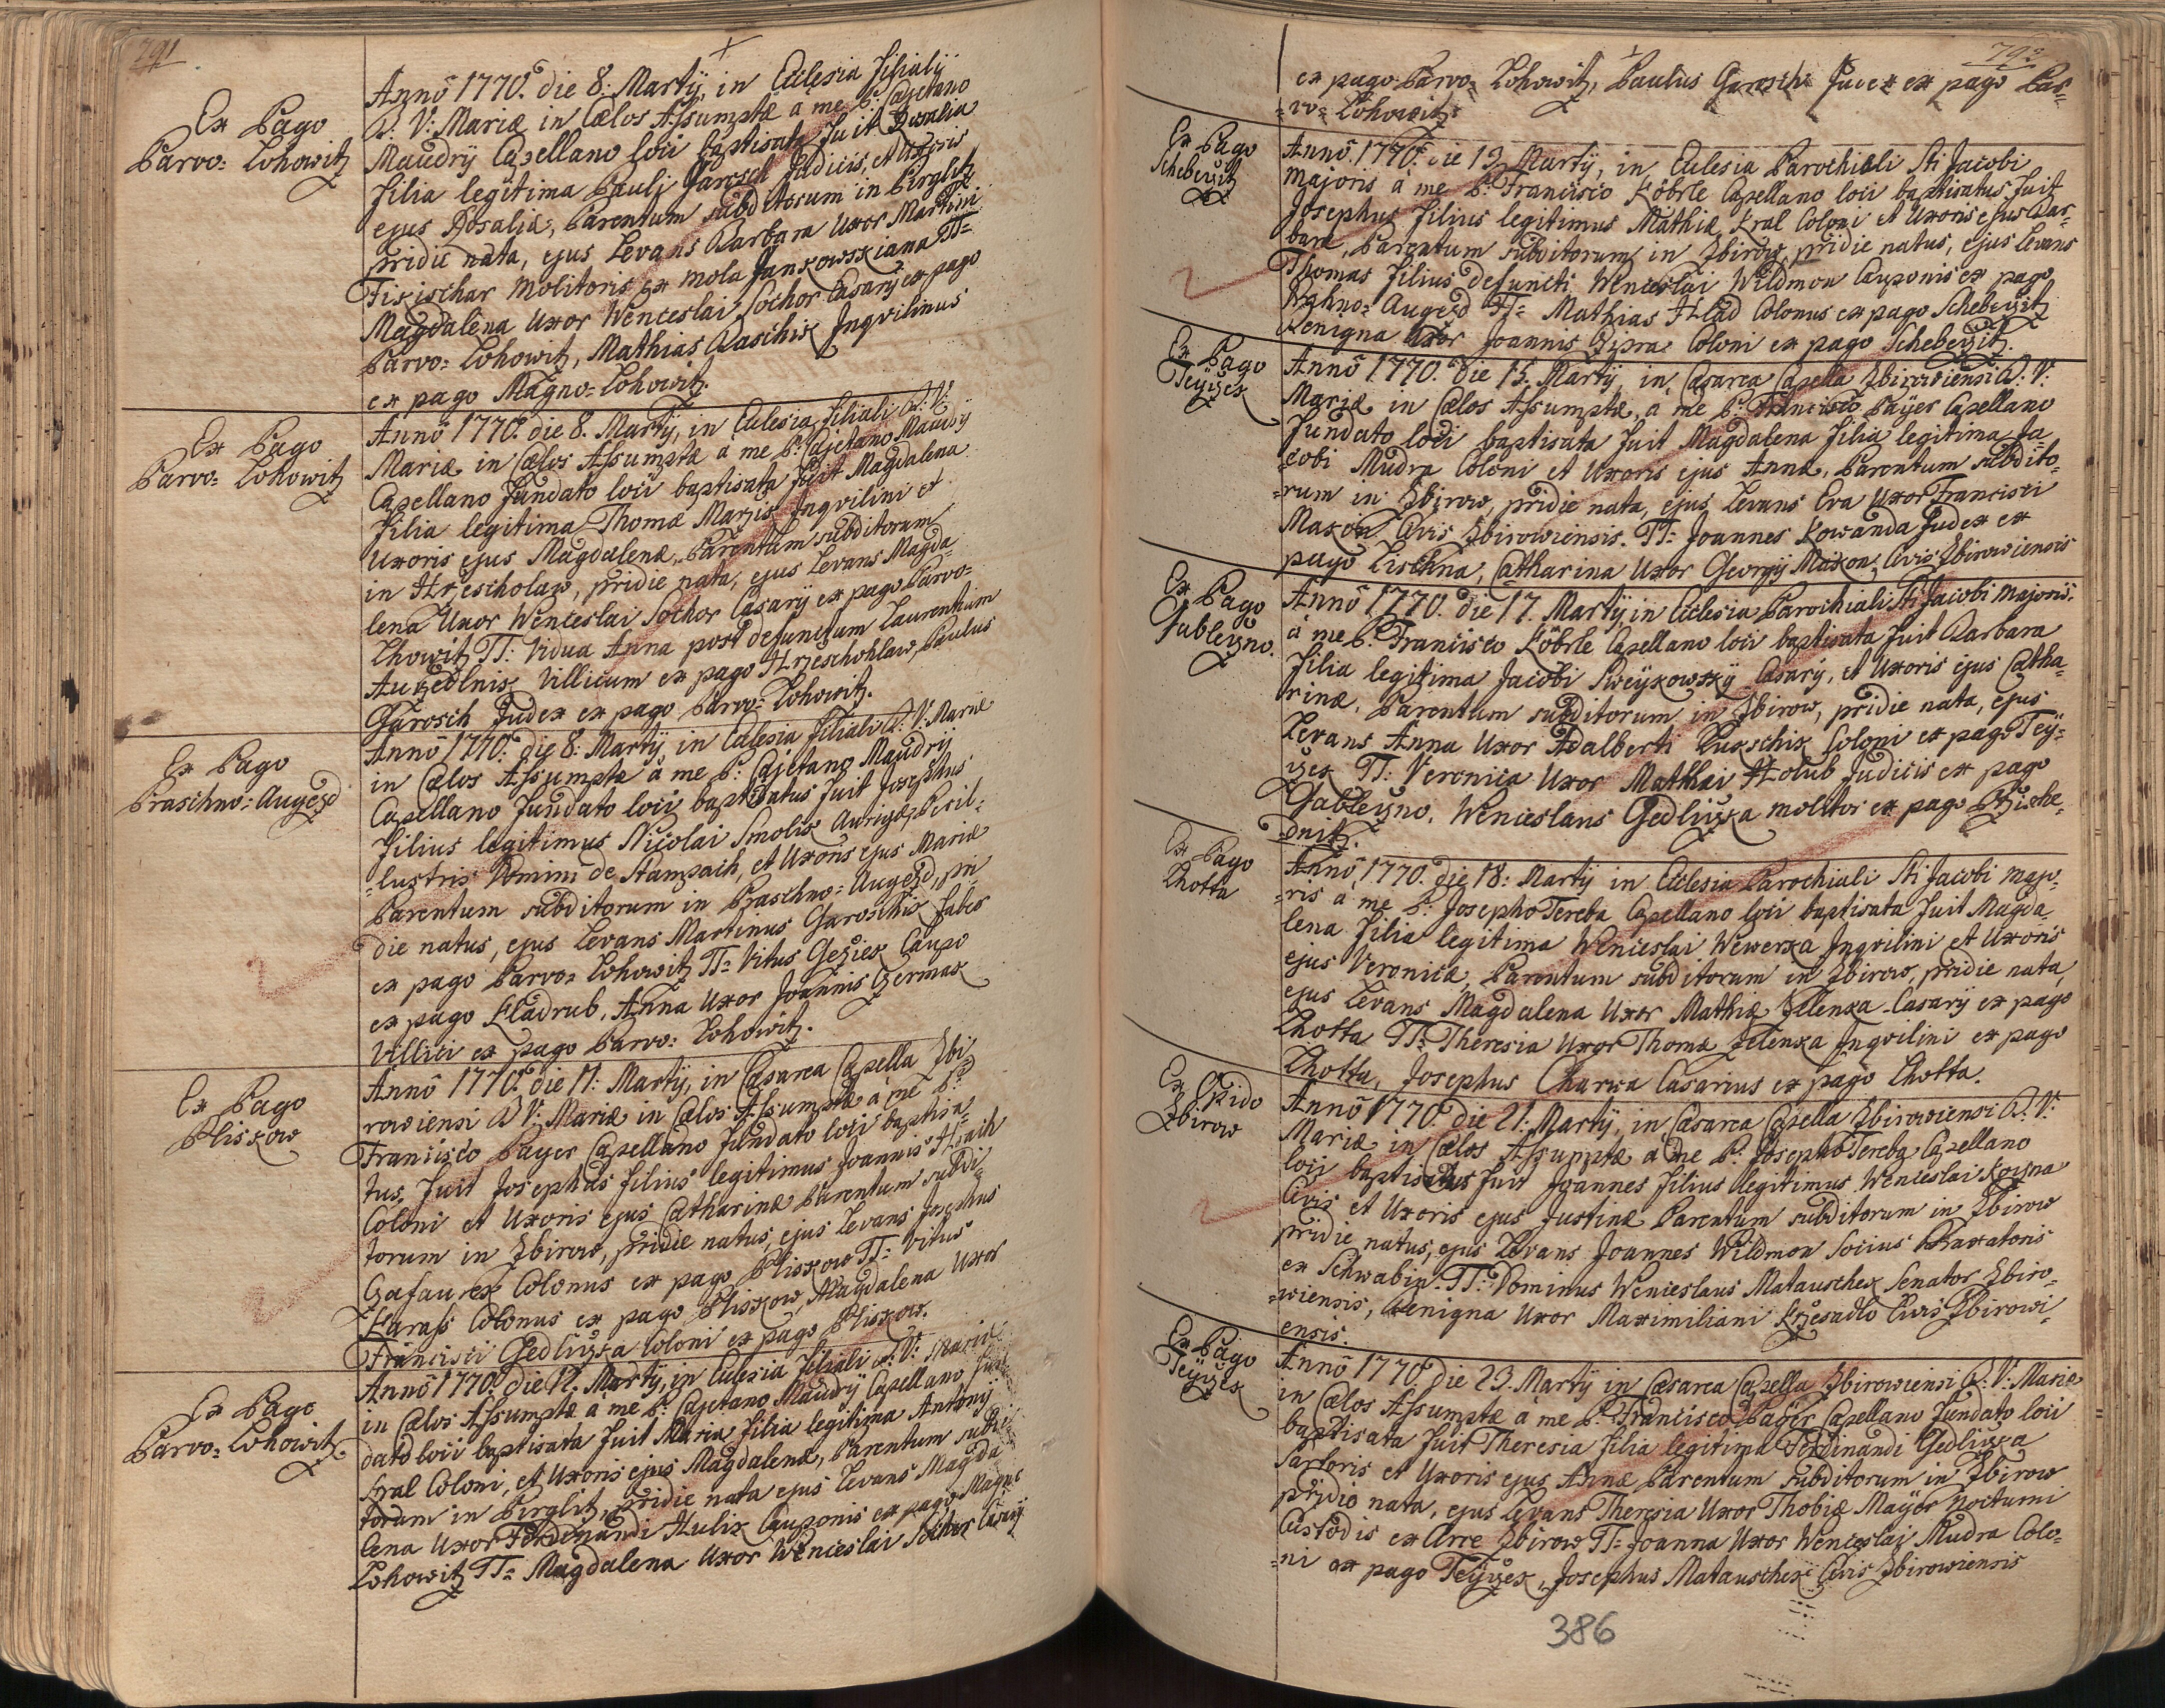 791
Ex Pago
Parvo= Lohowitz
Anno 1770. die 8: Martÿ, in Ecclesia filiali
B: V: Mariæ in Cælos Assumptæ à me P: Cajetano
Maudrÿ Capellano loci baptisata fuit Rosalia
filia legitima Pauli Jarosch Judicis, et Uxoris
ejus Rosaliæ, Parentum subditorum in Pirglitz
pridie nata, ejus Levans Barbara Uxor Martini
Fixischar Molitoris ex mola Jankowskiana TT=
Magdalena Uxor Wenceslai Sochor Casarÿ ex pago
Parvo= Lohowitz, Mathias Paschik Inqvilinus
ex pago Magno= Lohowitz.
Ex Pago
Parvo= Lohowitz
Anno 1770. die 8. Martÿ, in Ecclesia filiali B: V:
Mariæ in Cælos Assumptæ à me P: Cajetano Maudrÿ
Capellano fundato loci baptisata fuit Magdalena
filia legitima Thomæ Marzis Inqvilini et
Uxoris ejus Magdalenæ, Parentum subditorum
in Hrzescholaw, pridie nata, ejus Levans Magda=
lena Uxor Wenceslai Sochor Casarÿ ex pago Parvo=
Lhowitz TT: Vidua Anna post defunctum Laurentium
Auzedlnik Villicum ex pago Hrzeschohlaw, Paulus
Jarosch Judex ex pago Parvo= Lohowitz.
Ex Pago
Praschno= Augezd
Anno 1770. die 8: Martÿ, in Ecclesia filiali B: V: Mariæ
in Cælos Assumptæ à me P: Cajetano Maudrÿ
Capellano fundato loci baptisatus fuit Josephus
filius legitimus Nicolai Smolik Aurigæ, Peril=
=lustris Domini de Stampach, et Uxoris ejus Mariæ
Parentum subditorum in Praschno= Augezd, pri=
die natus, ejus Levans Martinus Jaroschik Faber
ex pago Parvo= Lohowitz TT= Vitus Gezier Caupo
ex pago Kladrub, Anna Uxor Joannis Czermak
Villici ex pago Parvo= Lohowitz.
Ex Pago
Pliskow
Anno 1770. die 11: Martÿ, in Cæsarea Capella Zbi=
rowiensi B: V: Mariæ in Cælos Assumptæ à me P:
Francisco Payer Capellano fundato loci baptisa=
tus, fuit Josephus filius legitimus Joannis Hrach
Coloni et Uxoris ejus Catharinæ Parentum subdi=
torum in Zbirow, pridie natus, ejus Levans Josephus
Gafaurek Colonus ex pago Pliskow TT= Vitus
Karass Colonus ex pago Pliskow, Magdalena Uxor
Francisci Gedliczka Coloni ex pago Pliskow.
Ex Pago
Parvo= Lohowitz
Anno 1770. die 12. Martÿ, in Ecclesia filiali B: V: Mariæ
in Cælos Assumptæ à me P: Cajetano Maudrÿ Capellano fun=
dato loci baptisata fuit Maria filia legitima Antonÿ
Kral Coloni, et Uxoris ejus Magdalenæ, Parentum subdi=
torum in Pirglitz, pridie nata ejus Levans Magda=
lena Uxor Ferdinandi Hulik Cauponis ex pago Magno
Lohowitz TT= Magdalena Uxor Wenceslai Sochor Casarÿ
792
ex pago Parvo= Lohowitz, Paulus Garosch Judex ex pago Par=
=vo= Lohowitz.
Ex Pago
Schebeczitz
Anno 1770. die 13. Martÿ, in Ecclesia Parochiali Sti Jacobi
Majoris à me P: Francisco Köbrle Capellano loci baptisatus fuit
Josephus filius legitimus Mathiæ Kral Coloni et Uxoris ejus Bar=
baræ, Parentum subditorum in Zbirow, pridie natus, ejus Levans
Thomas filius defuncti Wenceslai Wildmon Cauponis ex pago
Praschno= Augezd TT= Mathias Hlad Colonus ex pago Schebeczitz
Benigna Uxor Joannis Czipra Coloni ex pago Schebeczitz.
Ex Pago
Teÿczek
Anno 1770. die 15. Martÿ, in Cæsarea Capella Zbirowiensi B: V:
Mariæ in Cælos Assumptæ, à me P: Francisco Paÿer Capellano
fundato loci baptisata fuit Magdalena filia legitima Ja
cobi Mudra Coloni et Uxoris ejus Annæ, Parentum subdito=
=rum in Zbirow, pridie nata, ejus Levans Eva Uxor Francisci
Makon Civis Zbirowiensis. TT= Joannes Kowanda Judex ex
pago Lischna, Catharina Uxor Georgÿ Makon Civis Zbirowiensis
Ex Pago
Jableczno.
Anno 1770. die 17. Martÿ in Ecclesia Parochiali Sti Jacobi Majoris.
à me P: Francisco Köbrle Capellano loci baptisata fuit Barbara
filia legitima Jacobi Sweÿkowskÿ Casarÿ, et Uxoris ejus Catha=
rinæ, Parentum subditorum in Zbirow, pridie nata, ejus
Levans Anna Uxor Adalberti Lukschik Coloni ex pago Teÿ=
czek TT: Veronica Uxor Matthæi Holub Judicis ex pago
Jableczno, Wenceslaus Gedliczka molitor ex pago Przische=
=dnitz.
Ex Pago
Lhotta
Anno 1770. die 18: Martÿ in Ecclesia Parochiali Sti Jacobi Majo=
=ris à me P: Josepho Tereba Capellano loci baptisata fuit Magda=
lena filia legitima Wenceslai Wewerka Inqvilini et Uxoris
ejus Veronicæ, Parentum subditorum in Zbirow, pridie nata,
ejus Levans Magdalena Uxor Mathiæ Zelenka Casarÿ ex pago
Lhotta TT= Theresia Uxor Thomæ Zelenka Inqvilini ex pago
Lhotta, Josephus Charwa Casarius ex pago Lhotta.
Ex Opido
Zbirow
Anno 1770. die 21: Martÿ, in Cæsarea Capella Zbirowiensi B: V:
Mariæ in Cælos Assumptæ à me P: Josepho Tereba Capellano
loci baptisatus fuit Joannes filius legitimus Wenceslai Kozna
Civis et Uxoris ejus Justinæ Parentum subditorum in Zbirow
pridie natus, ejus Levans Joannes Wildmon Socius Braxatoris
ex Schwabin. TT: Dominus Wenceslaus Matauschek Senator Zbiro=
=wiensis, Benigna Uxor Maximiliani Krzesadlo Civis Zbirowi=
ensis.
Ex Pago
Teÿczek
Anno 1770. die 23. Martÿ in Cæsarea Capella Zbirowiensi B: V: Mariæ
in Cælos Assumptæ à me P: Francisco Paÿer Capellano fundato loci
baptisata fuit Theresia filia legitima Ferdinandi Gedliczka
Sartoris et Uxoris ejus Annæ Parentum subditorum in Zbirow
pridie nata, ejus Levans Theresia Uxor Thobiæ Maÿer Nocturni
Custodis ex Arce Zbirow TT= Joanna Uxor Wenceslai Mudra Colo=
=ni ex pago Teÿczek, Josephus Matauschek Civis Zbirowiensis
386